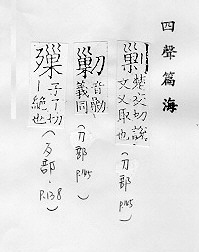 四聲篇海
劋
楚交切
文又取也
(刀部 P.145)
音勦
義同
(刀部 P.145)
子了切
｜絕也
(歹部 P.138)